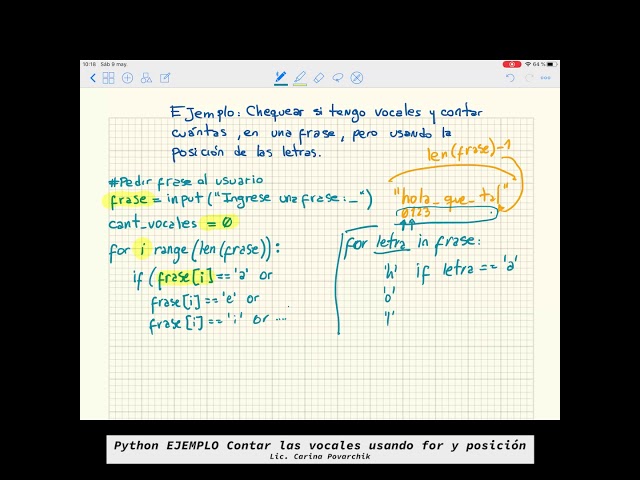 10:18 Sáb 9 may.
64 %
Ejemplo: Chequear si tengo vocales y contar
cuántas, en una frase, pero usando la
posición de las letras.
len(frase)-1
#Pedir frase al usuario
frase = input ("Ingrese una frase:_")
"hola_que_tal"
0123
cant_vocales = 0
for i range (len(frase)):
if (frase[i] == 'a' or
frase[i] == 'e' or
frase[i] == 'i' or ....
for letra in frase:
'h' if letra == 'a'
'o'
'l'
Python EJEMPLO Contar las vocales usando for y posición
Lic. Carina Povarchik